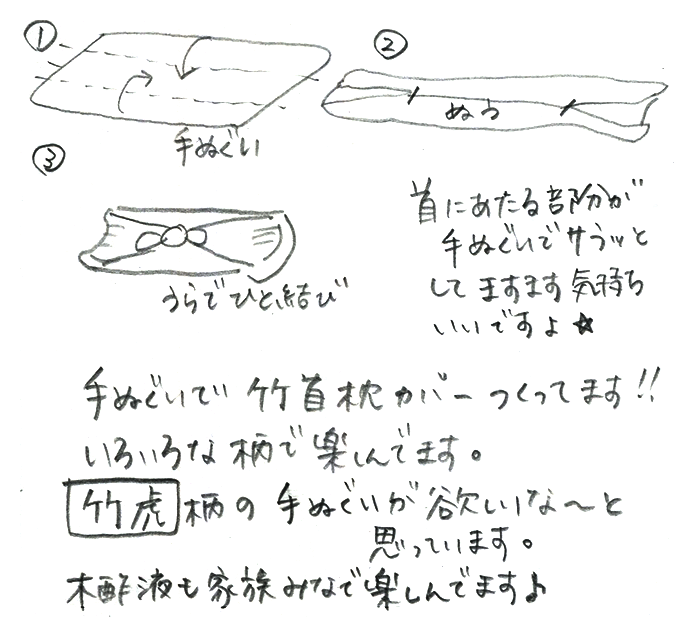 ①
手ぬぐい
②
ぬう
③
うらでひと結び
首にあたる部分が
手ぬぐいでサラッと
してますます気持ち
いいですよ★
手ぬぐいで竹首枕カバーつくってます!!
いろいろな柄で楽しんでます。
竹虎柄の手ぬぐいが欲しいな〜と
思っています。
木酢液も家族みなで楽しんでます♪